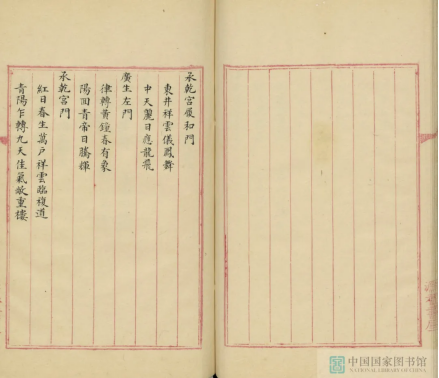 承乾宮履和門
東井祥雲儀鳳舞
中天麗日應龍飛
廣生左門
律轉黃鐘春有象
陽回青帝日騰輝
承乾宮門
紅日春生萬戶祥雲臨複道
青陽乍轉九天佳氣敞重樓
中国国家图书馆
NATIONAL LIBRARY OF CHINA